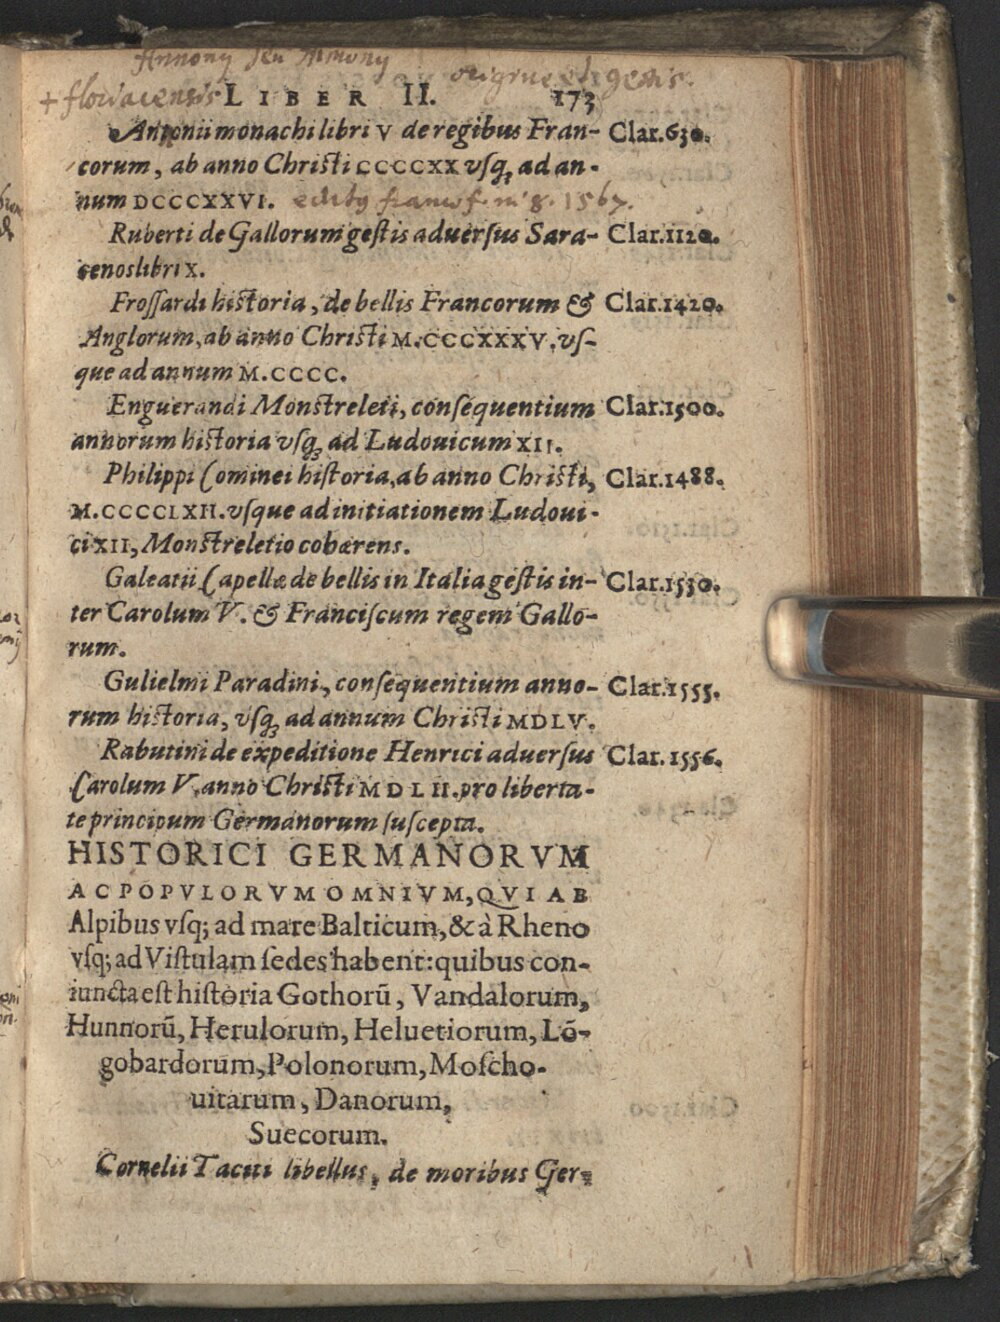 Annony seu Aimony
+ floriacensis origine et gestis.
LIBER II. 173
Antonii monachi libri V de regibus Fran- Clar.630.
corum, ab anno Christi CCCCXX vsq; ad an-
num DCCCXXVI. editus francof. in 8. 1567.
Ruberti de Gallorum gestis aduersus Sara- Clar.1120.
cenos libri X.
Frossardi historia, de bellis Francorum & Clar.1420.
Anglorum, ab anno Christi M.CCCXXXV. vs-
que ad annum M.CCCC.
Enguerandi Monstreleti, consequentium Clar.1500.
annorum historia vsq; ad Ludouicum XII.
Philippi Cominei historia, ab anno Christi, Clar.1488.
M.CCCCLXII. vsque ad initiationem Ludoui-
ci XII, Monstreletio cohærens.
Galeatii Capellæ de bellis in Italia gestis in- Clar.1530.
ter Carolum V. & Franciscum regem Gallo-
rum.
Gulielmi Paradini, consequentium anno- Clar.1555.
rum historia, vsq; ad annum Christi MDLV.
Rabutini de expeditione Henrici aduersus Clar.1556.
Carolum V. anno Christi MDLII. pro liberta-
te principum Germanorum suscepta.
HISTORICI GERMANORVM
AC POPVLORVM OMNIVM, QVI AB
Alpibus vsq; ad mare Balticum, & à Rheno
vsq; ad Vistulam sedes habent: quibus con-
iuncta est historia Gothorū, Vandalorum,
Hunnorū, Herulorum, Heluetiorum, Lō-
gobardorum, Polonorum, Moscho-
uitarum, Danorum,
Suecorum.
Cornelii Taciti libellus, de moribus Ger-